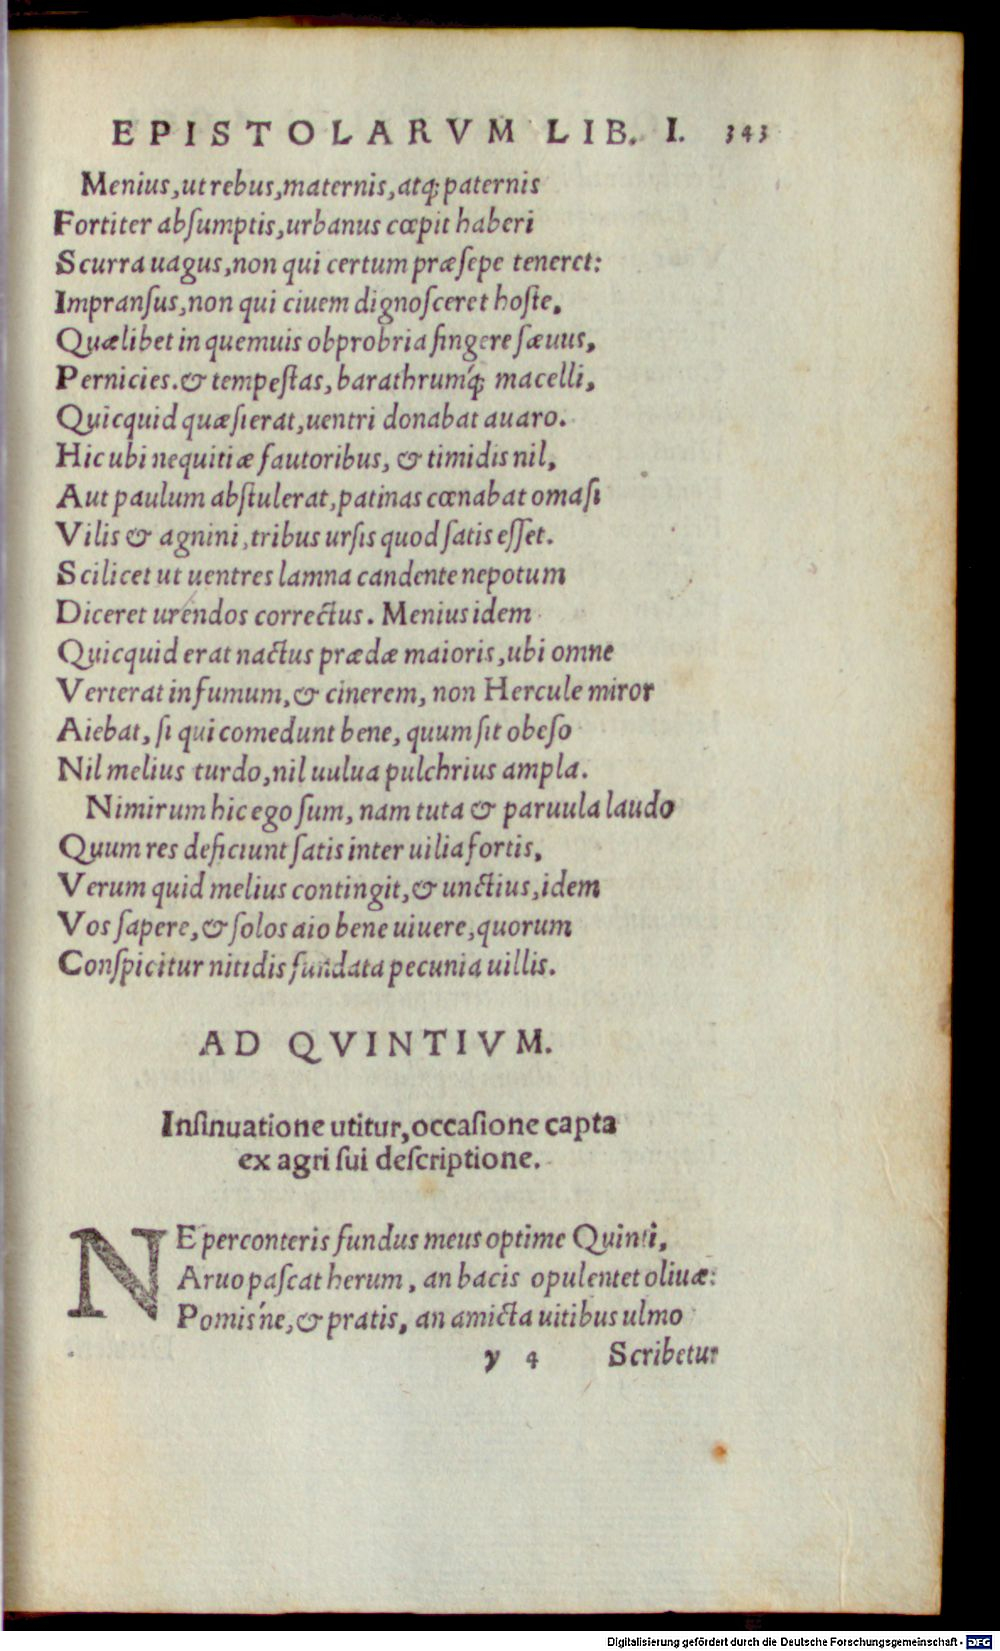 EPISTOLARVM LIB. I. 343
Menius, ut rebus, maternis, atq; paternis
Fortiter abſumptis, urbanus cœpit haberi
Scurra uagus, non qui certum præſepe teneret:
Impranſus, non qui ciuem dignoſceret hoſte,
Quælibet in quemuis obprobria fingere ſæuus,
Pernicies. & tempeſtas, barathrumq́; macelli,
Quicquid quæſierat, uentri donabat auaro.
Hic ubi nequitiæ fautoribus, & timidis nil,
Aut paulum abſtulerat, patinas cœnabat omaſi
Vilis & agnini, tribus urſis quod ſatis eſſet.
Scilicet ut uentres lamna candente nepotum
Diceret urendos correctus. Menius idem
Quicquid erat nactus prædæ maioris, ubi omne
Verterat in fumum, & cinerem, non Hercule miror
Aiebat, ſi qui comedunt bene, quum ſit obeſo
Nil melius turdo, nil uulua pulchrius ampla.
Nimirum hic ego ſum, nam tuta & paruula laudo
Quum res deficiunt ſatis inter uilia fortis,
Verum quid melius contingit, & unctius, idem
Vos ſapere, & ſolos aio bene uiuere, quorum
Conſpicitur nitidis fundata pecunia uillis.
AD QVINTIVM.
Inſinuatione utitur, occaſione capta
ex agri ſui deſcriptione.
NE perconteris fundus meus optime Quinti,
Aruo paſcat herum, an bacis opulentet oliuæ:
Pomis'ne, & pratis, an amicta uitibus ulmo
y 4 Scribetur
Digitalisierung gefördert durch die Deutsche Forschungsgemeinschaft - DFG